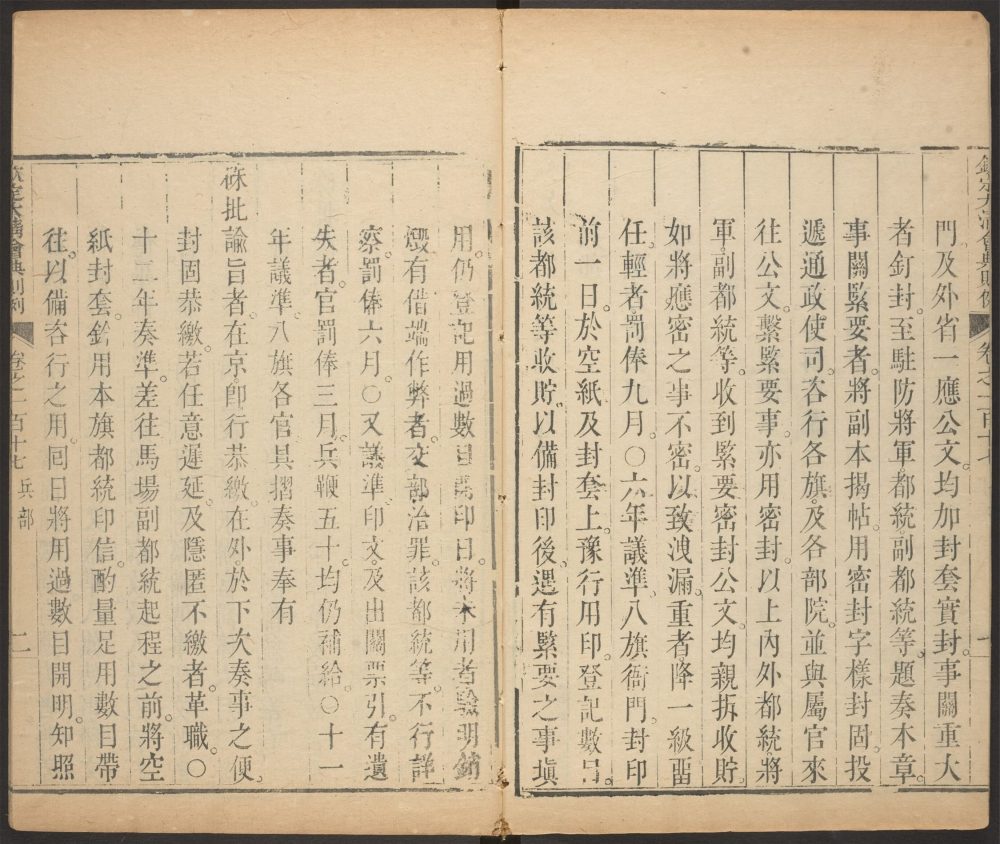 欽定大清會典則例 卷之一百十七
門及外省一應公文均加封套實封事關重大
者釘封至駐防將軍都統副都統等題奏本章
事關緊要者將副本揭帖用密封字樣封固投
遞通政使司咨行各旗及各部院並與屬官來
往公文繫緊要事亦用密封以上內外都統將
軍副都統等收到緊要密封公文均親拆收貯
如將應密之事不密以致洩漏重者降一級畱
任輕者罰俸九月○六年議準八旗衙門封印
前一日於空紙及封套上豫行用印登記數目
該都統等收貯以備封印後遇有緊要之事塡
用仍登記用過數目 印日將未用者驗明銷
燬有借端作弊者交部治罪該都統等不行詳
察罰俸六月○又議準印文及出關票引有遺
失者官罰俸三月兵鞭五十均仍補給○十一
年議準八旗各官具摺奏事奉有
硃批諭旨者在京卽行恭繳在外於下次奏事之便
封固恭繳若任意遲延及隱匿不繳者革職○
十二年奏準差往馬場副都統起程之前將空
紙封套鈐用本旗都統印信酌量足用數目帶
往以備咨行之用囘日將用過數目開明知照
欽定大清會典則例 卷之一百十七 兵部 二